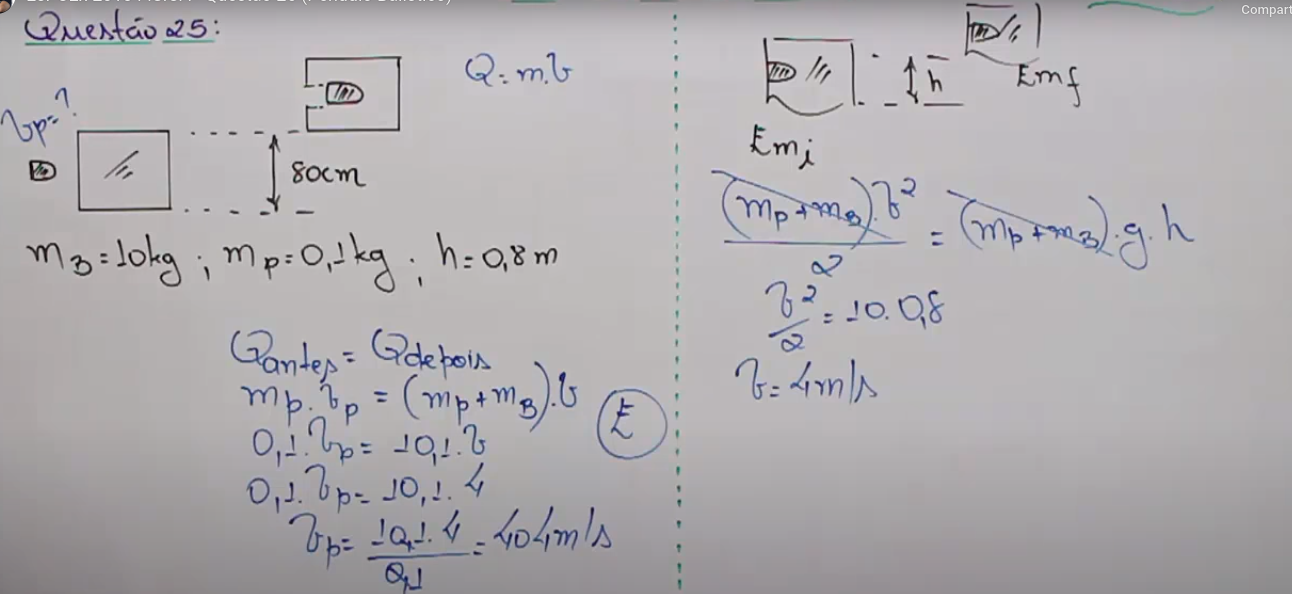 Compart
Questão 25:
Q = m.v
vp=?
80cm
mB=10kg ; mp=0,1kg ; h=0,8m
Qantes = Qdepois
mp.vp = (mp+mB).v
0,1.vp = 10,1.v
0,1.vp = 10,1.4
vp = 10,1.4 / 0,1 = 404m/s
E
h
Emf
Emi
(mp+mB).v² / 2 = (mp+mB).g.h
v²/2 = 10.0,8
v = 4m/s